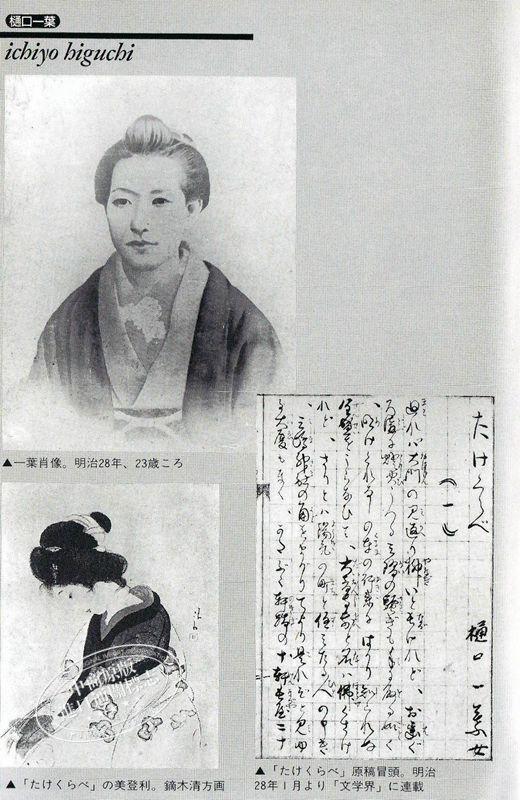 樋口一葉
ichiyo higuchi
▲一葉肖像。明治28年、23歳ころ
たけくらべ
樋口一葉女
(一)
廻れバ大門の見返り柳いと長けれど、お歯ぐ
ろ溝に燈火うつる三階の騒ぎも手に取る如く
、明けくれなしの車の行来にはかり知られぬ
全盛をうらなひて、大音寺前と名は佛くさけ
れど、さりとは陽気の町と住みたる人の申き
、三嶋神社の角をまがりてより是れぞと見ゆ
る大厦もなく、かたぶく軒端の十軒長屋二十
▲「たけくらべ」の美登利。鏑木清方画
▲「たけくらべ」原稿冒頭。明治
28年1月より「文学界」に連載